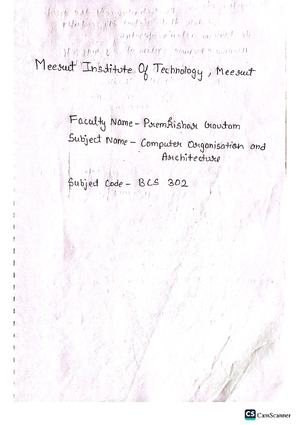 Meerut Institute Of Technology, Meerut
Faculty Name - PremKishor Gautam
Subject Name - Computer Organisation and
Architecture
Subject Code - BCS 302
CS CamScanner